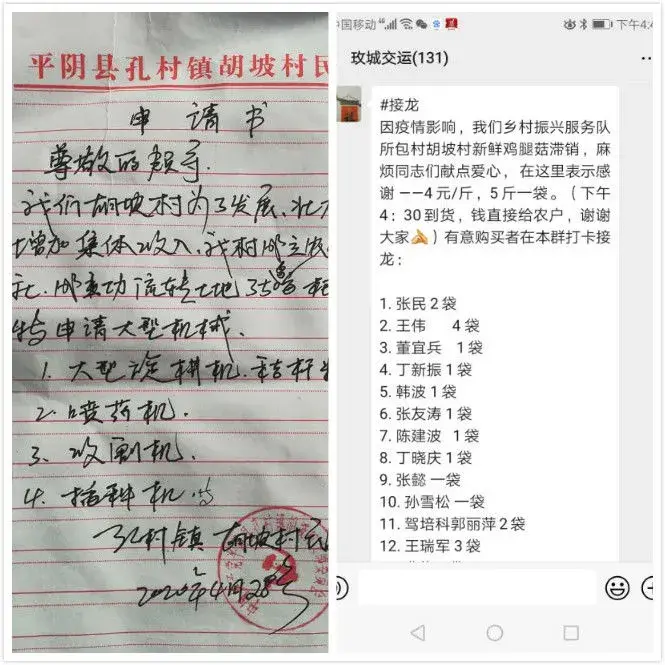 平阴县孔村镇胡坡村民
申请书
尊敬的领导
我们胡坡村为了发展.壮大
增加集体收入.我村成立
社.成功流转土地
特申请大型机械.
1.大型旋耕机.秸秆
2.喷药机.
3、收割机.
4.播种机.等
孔村镇胡坡村民
2020年4月28号
中国移动
下午4:4
玫城交运(131)
#接龙
因疫情影响，我们乡村振兴服务队
所包村胡坡村新鲜鸡腿菇滞销，麻
烦同志们献点爱心，在这里表示感
谢 ——4元/斤，5斤一袋。（下午
4：30到货，钱直接给农户，谢谢
大家🙏）有意购买者在本群打卡接
龙：
1. 张民 2 袋
2. 王伟 4 袋
3. 董宜兵 1袋
4. 丁新振 1 袋
5. 韩波 1袋
6. 张友涛 1袋
7. 陈建波 1袋
8. 丁晓庆 1 袋
9. 张懿 一袋
10. 孙雪松 一袋
11. 驾培科郭丽萍2袋
12. 王瑞军 3袋